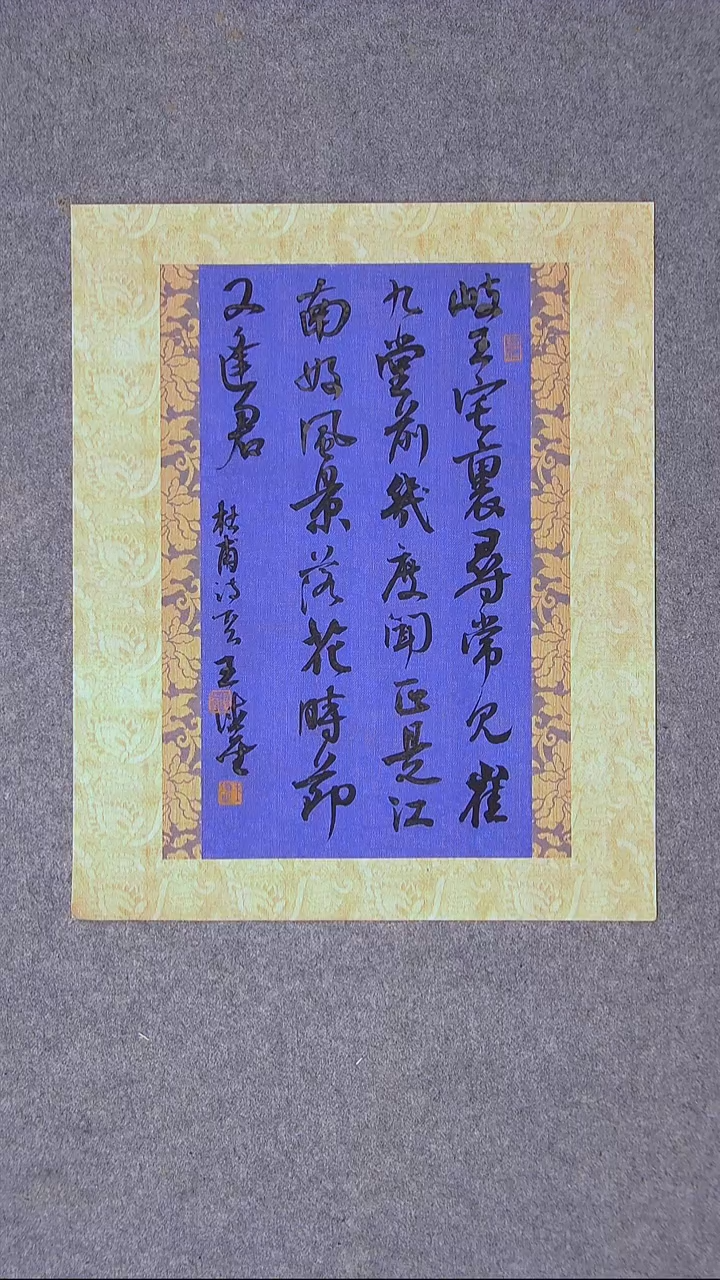 岐王宅裏尋常見崔
九堂前幾度聞正是江
南好風景落花時節
又逢君
杜甫詩 王